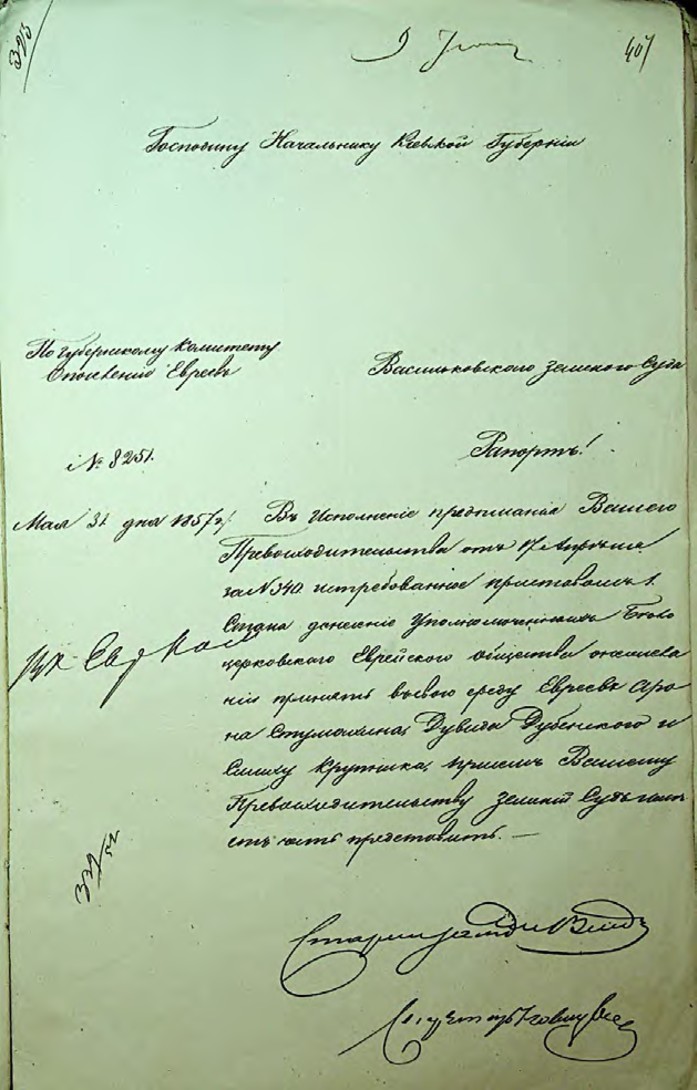 325
9 Июня
407
Господину Начальнику Кіевской Губерніи
По Губернскому Комитету
О поселеніи Евреевъ
Васильковского Земского Суда
№ 8251.
Рапортъ!
Мая 31 дня 1857 г. Въ Исполненіе предписанія Вашего
Превосходительства отъ 17 Апреля
за № 340. истребованное приставомъ 1.
Стана донесеніе Уполномоченныхъ Бѣло
церковского Еврейского общества онежела
ніи принять въсвою среду Евреевъ Аро
на Стумахина, Дувида Дубенского и
Симху Крупника, присемъ Вашему
Превосходительству Земскій Судъ имѣ
етъ честь представить. —